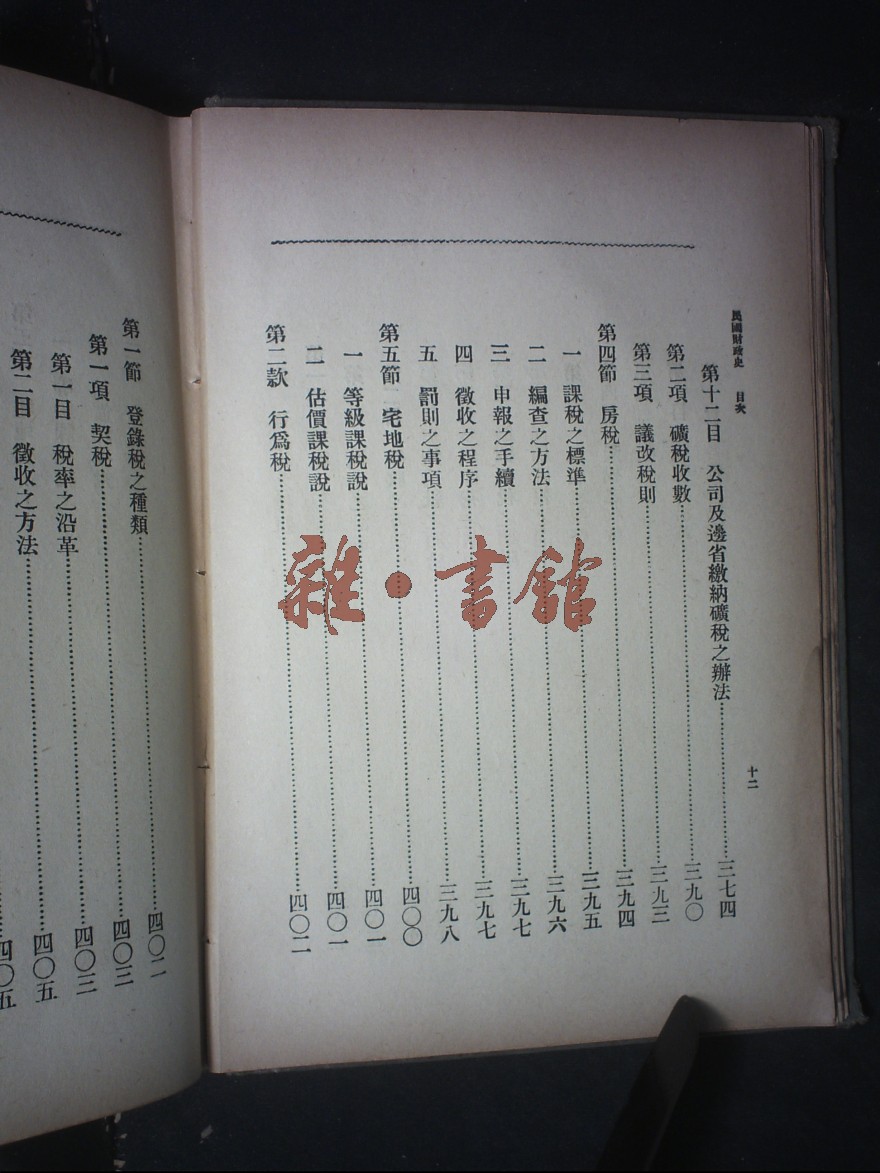 民國財政史　目次
十二
第十二目　公司及邊省繳納礦稅之辦法……三七四
第二項　礦稅收數……三九〇
第三項　議改稅則……三九三
第四節　房稅……三九四
一　課稅之標準……三九五
二　編查之方法……三九六
三　申報之手續……三九七
四　徵收之程序……三九七
五　罰則之事項……三九八
第五節　宅地稅……四〇〇
一　等級課稅說……四〇一
二　估價課稅說……四〇一
第二款　行爲稅……四〇二
第一節　登錄稅之種類……四〇二
第一項　契稅……四〇三
第一目　稅率之沿革……四〇三
第二目　徵收之方法……四〇五
四〇五
雜·書館